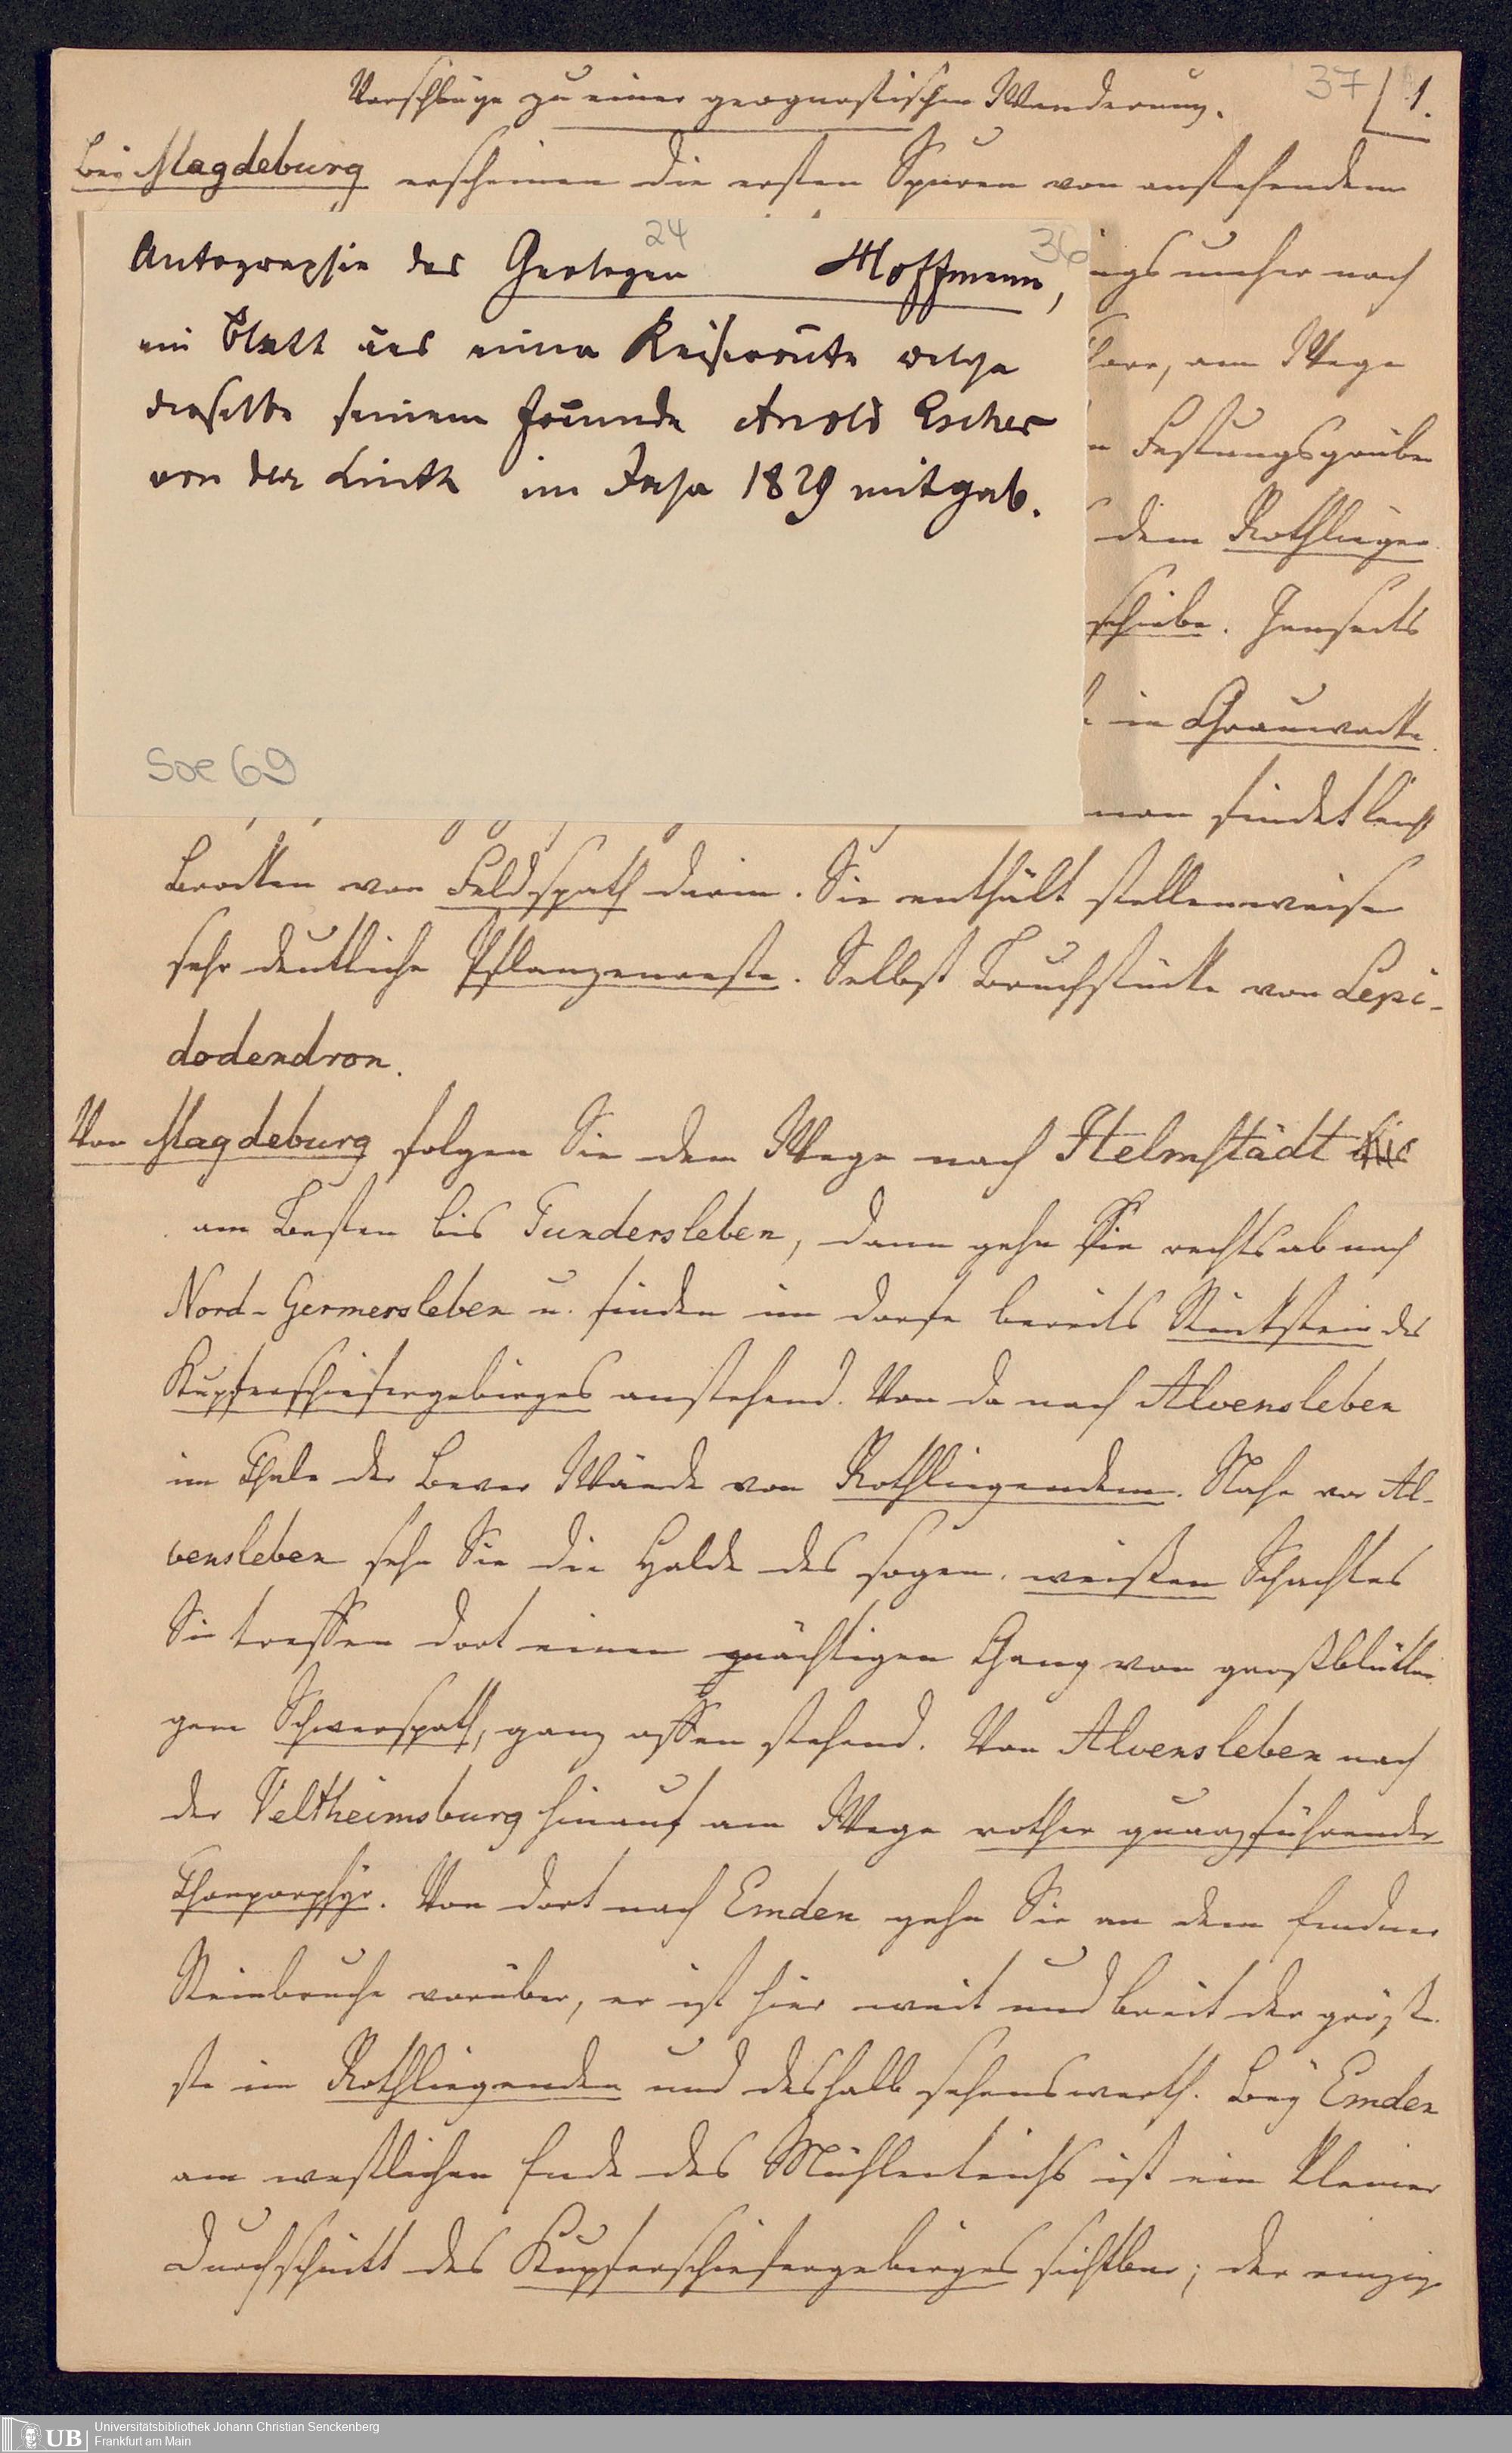 37 / 1.
Vorschläge zu einer geognostischen Wanderung.
Bei Magdeburg erscheinen die ersten Spuren von anstehendem
24
36
Autographie des Geologen Hoffmann,
ein Blatt aus einer Reiseroute welche
derselbe seinem Freunde Arnold Escher
von der Linth im Jahr 1829 mitgab.
Soe 69
ngs umher nach
Thore, am Wege
n Festungsgraben
dem Rothliegen
schiebe. Jenseits
in Grauwacke.
man findet leicht
Brocken von Feldspath darin. Sie enthält stellenweise
sehr deutliche Pflanzenreste. Selbst Bruchstücke von Lepi-
dodendron.
Von Magdeburg folgen Sie dem Wege nach Helmstädt bis
am Besten bis Tundersleben, dann gehn Sie rechts ab nach
Nord-Germersleben u. finden im Dorfe bereits Stinkstein des
Kupferschiefergebirges anstehend. Von da nach Alvensleben
im Thale der Bever Wände von Rothliegendem. Nahe vor Al-
vensleben sehn Sie die Halde des sogen. weißen Schachtes
Sie treffen dort einen mächtigen Gang von großblättri
gem Schwerspath, ganz offen stehend. Von Alvensleben nach
der Veltheimsburg hinauf am Wege rother quarzführender
Thonporphyr. Von dort nach Emden gehn Sie an dem Emdner
Steinbruche vorüber, er ist hier weit und breit der größ-
ste im Rothliegenden und deshalb sehenswerth. Bey Emden
am westlichen Ende des Mühlenteichs ist ein kleiner
Durchschnitt des Kupferschiefergebirges sichtbar; der einzige
UB
Universitätsbibliothek Johann Christian Senckenberg
Frankfurt am Main